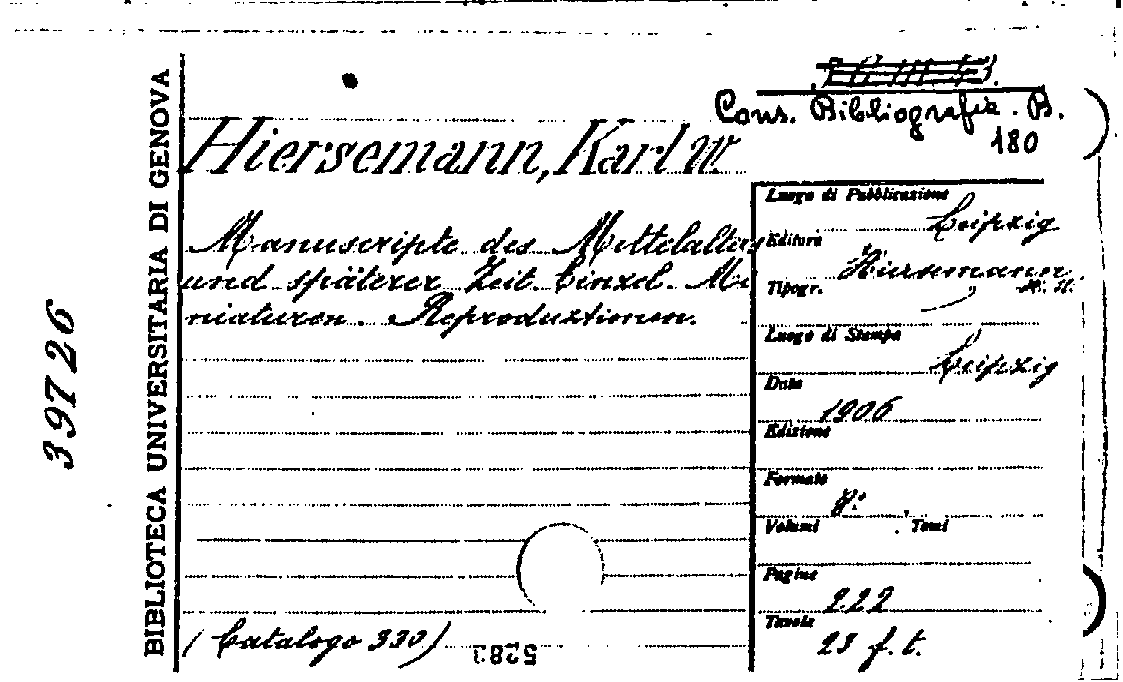 Cons. Bibliografia. B.
180
Hiersemann, Karl W.
Manuscripte des Mittelalters
und späterer Zeit. Einzel. Mi
niaturen. Reproduktionen.
(Catalogo 330)
5283
BIBLIOTECA UNIVERSITARIA DI GENOVA
39726
Luogo di Pubblicazione
Leipzig
Editore
Hiersemann
Tipogr.
K. W.
Luogo di Stampa
Leipzig
Data
1906
Edizione
Formato
8°
Volumi . Tomi
Pagine
222
Tavole
28 f. t.